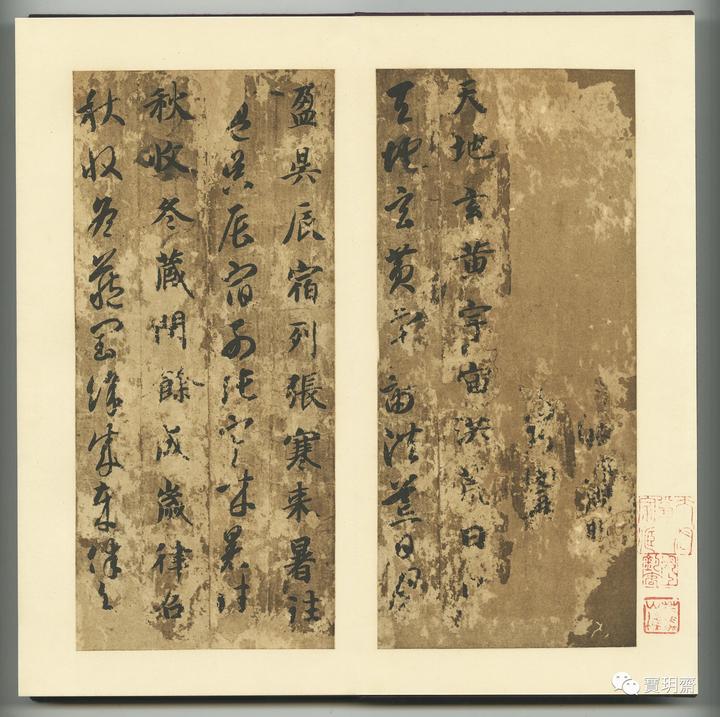 天地玄黄宇宙洪荒日月
天地玄黄宇宙洪荒日月
盈昃辰宿列張寒来暑往
盈昃辰宿列張寒来暑往
秋收冬藏閏餘成歲律吕
秋收冬藏閏餘成歲律吕
寶玥齋